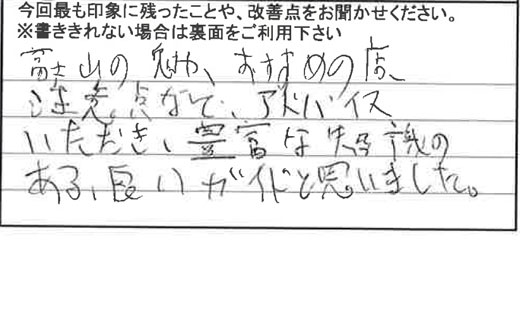 今回最も印象に残ったことや、改善点をお聞かせください。
※書ききれない場合は裏面をご利用下さい
富士山の魅力、おすすめの店、
注意点など、アドバイス
いただき、豊富な知識の
ある、良いガイドと思いました。